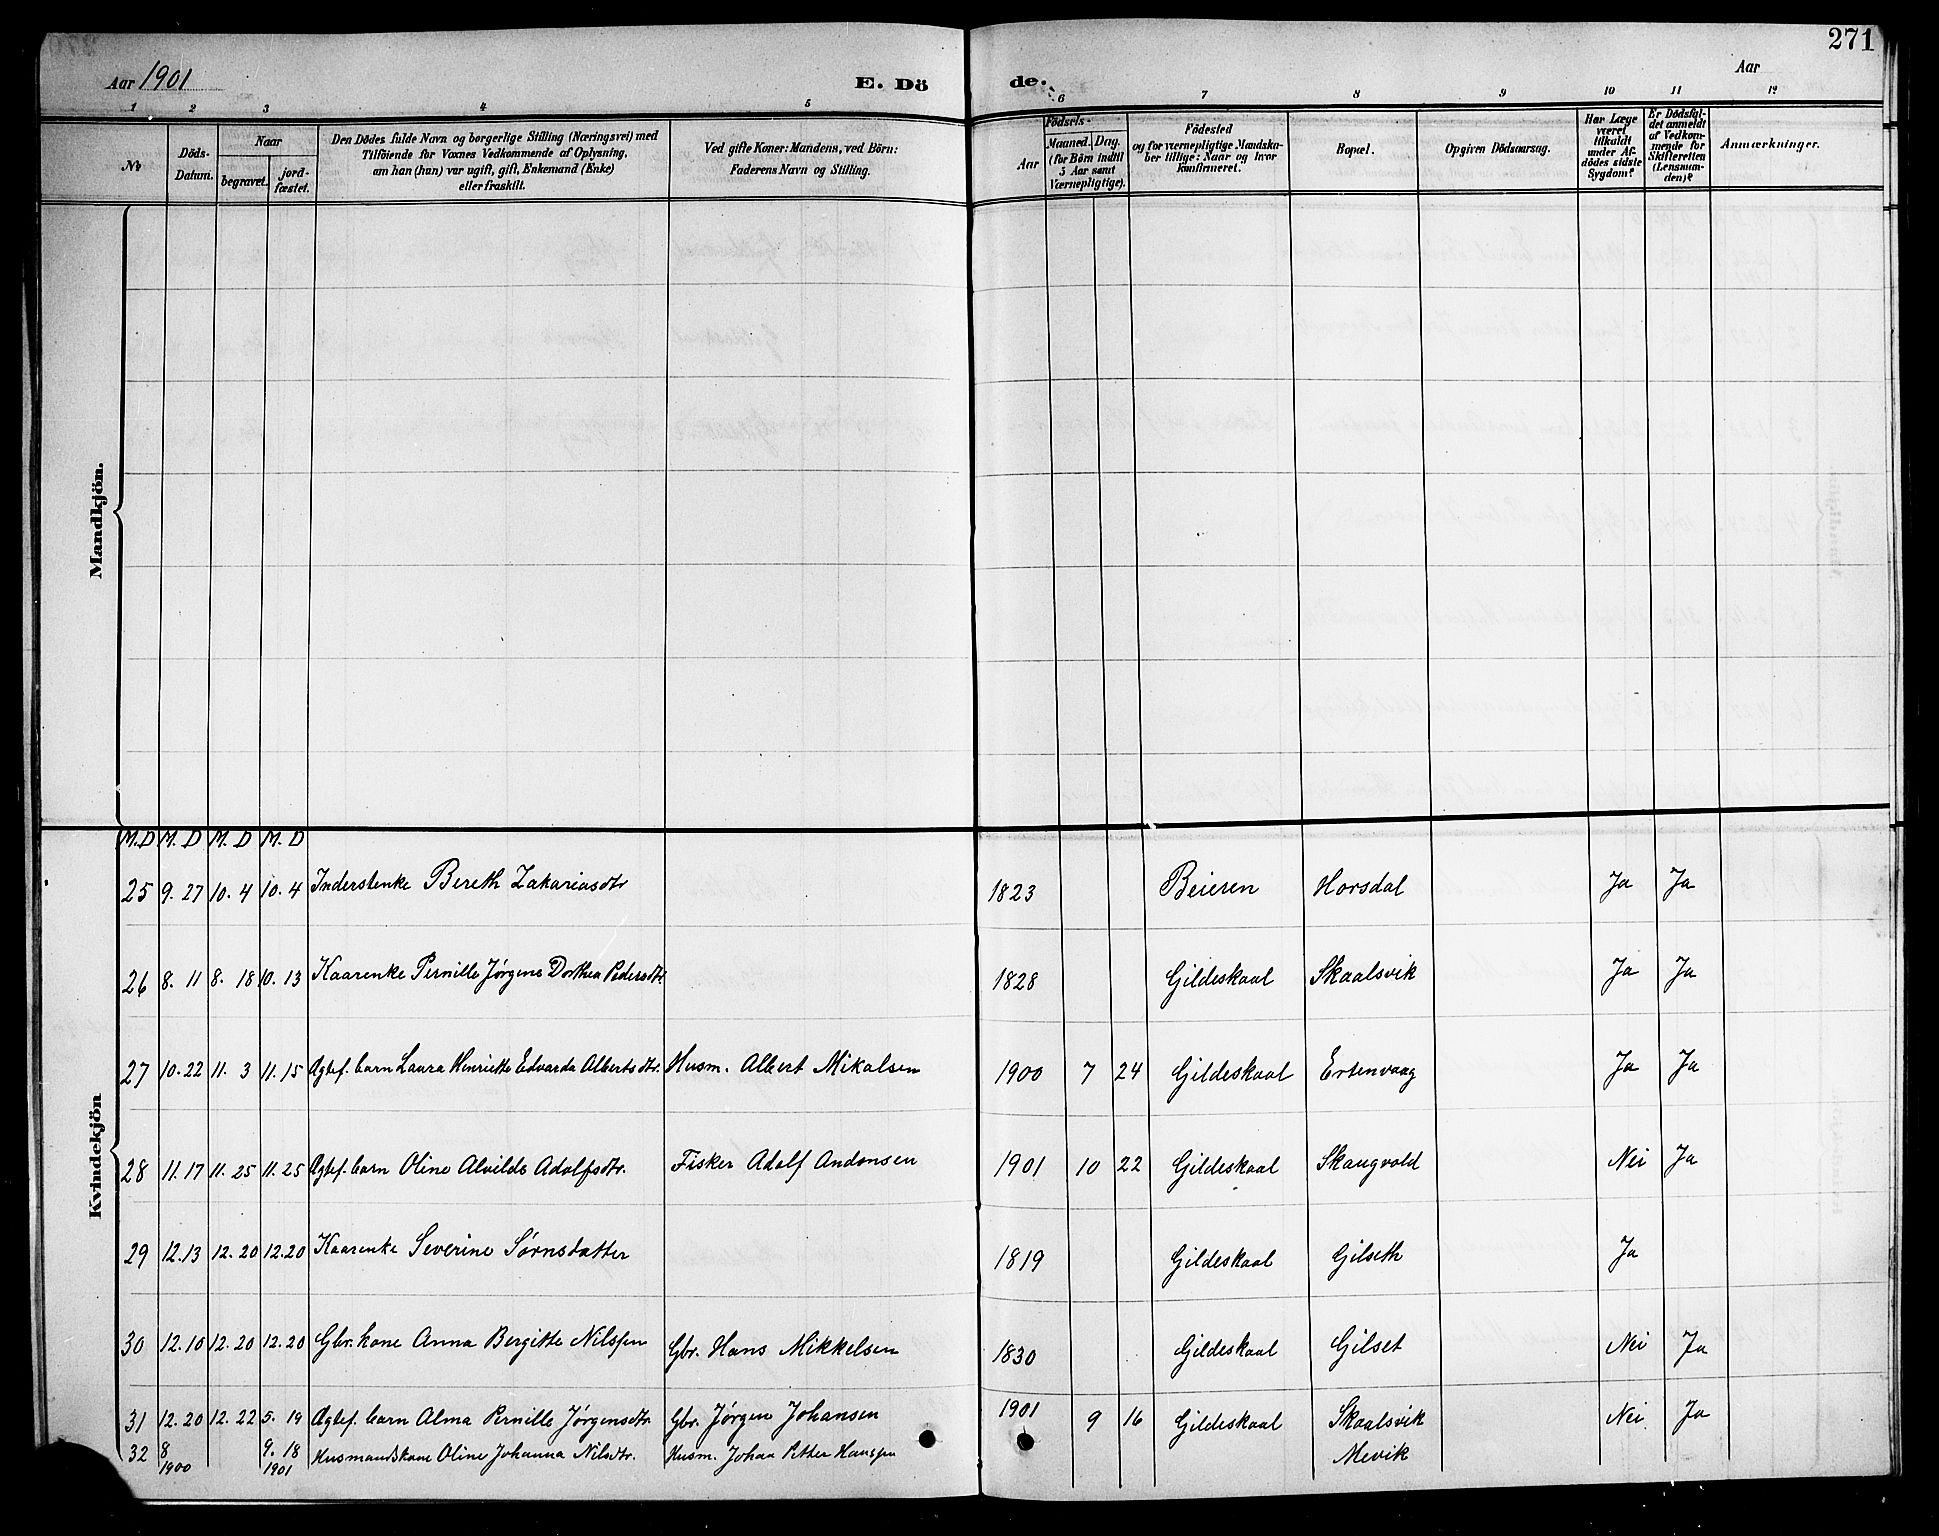 271
Aar 1901 E. Dö de. Aar
1 2 3 4 5 6 7 8 9 10 11 12
No
Döds-Datum.
Naar
begravet. jord-fæstet.
Den Dödes fulde Navn og borgerlige Stilling (Næringsvei) med
Tilföiende for Voxnes Vedkommende af Oplysning,
om han (hun) var ugift, gift, Enkemand (Enke)
eller fraskilt.
Ved gifte Koner: Mandens, ved Börn:
Faderens Navn og Stilling.
Födsels-
Aar Maaned. Dag.
(for Börn indtil
5 Aar samt
Værnepligtige).
Födested
og for værnepligtige Mandska-
ber tillige: Naar og hvor
konfirmeret.
Bopæl.
Opgiven Dödsaarsag.
Har Læge
været
tilkaldt
under Af-
dödes sidste
Sygdom?
Er Dödsfal-
det anmeldt
af Vedkom-
mende for
Skifteretten
(Lensman-
den)?
Anmærkninger.
Mandkjön.
Kvindekjön
M. D M. D M. D M. D
25 9. 27 10. 4 10. 4 Inderstenke Bereth Zakariasdtr 1823 Beieren Horsdal Ja Ja
26 8. 11 8. 18 10. 13 Kaarenke Pernille Jørgine Dorthea Pedersdtr. 1828 Gildeskaal Skaalsvik Ja Ja
27 10. 22 11. 3 11. 15 Ægtef. barn Laura Henriette Edvarda Albertsdtr. Husm. Albert Mikalsen 1900 7 24 Gildeskaal Ertenvaag Ja Ja
28 11. 17 11. 25 11. 25 Ægtef. barn Oline Alvilde Adolfsdtr. Fisker Adolf Andonsen 1901 10 22 Gildeskaal Skaugvold Nei Ja
29 12. 13 12. 20 12. 20 Kaarenke Severine Sørnsdatter 1819 Gildeskaal Gilseth Ja
30 12. 10 12. 20 12. 20 Gbr. kone Anna Bergitte Nilssen Gbr. Hans Mikkelsen 1830 Gildeskaal Gilset Nei Ja
31 12. 20 12. 22 5. 19 Ægtef. barn Alma Pernille Jørgensdtr. Gbr. Jørgen Johansen 1901 9 16 Gildeskaal Skaalsvik Nei Ja
32 8 1900 9. 18 1901 Husmandskone Oline Johanna Nilsdtr. Husm. Johan Petter Hanssen Mevik